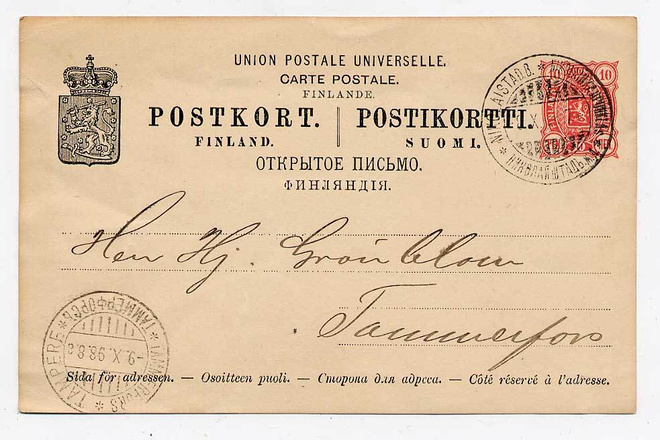 UNION POSTALE UNIVERSELLE.
CARTE POSTALE.
FINLANDE.
POSTKORT. | POSTIKORTTI.
FINLAND. SUOMI.
ОТКРЫТОЕ ПИСЬМО.
ФИНЛЯНДІЯ.
10 10
NIKOLAISTAD.B.
НИКОЛАЙШТАДЪ
Herr Hj. Grönblom
Tammerfors
TAMPERE * TAMMERFORS * ТАММЕРФОРСЪ
-9.X.98.8
Sida för adressen. — Osoitteen puoli. — Сторона для адреса. — Côté réservé à l'adresse.